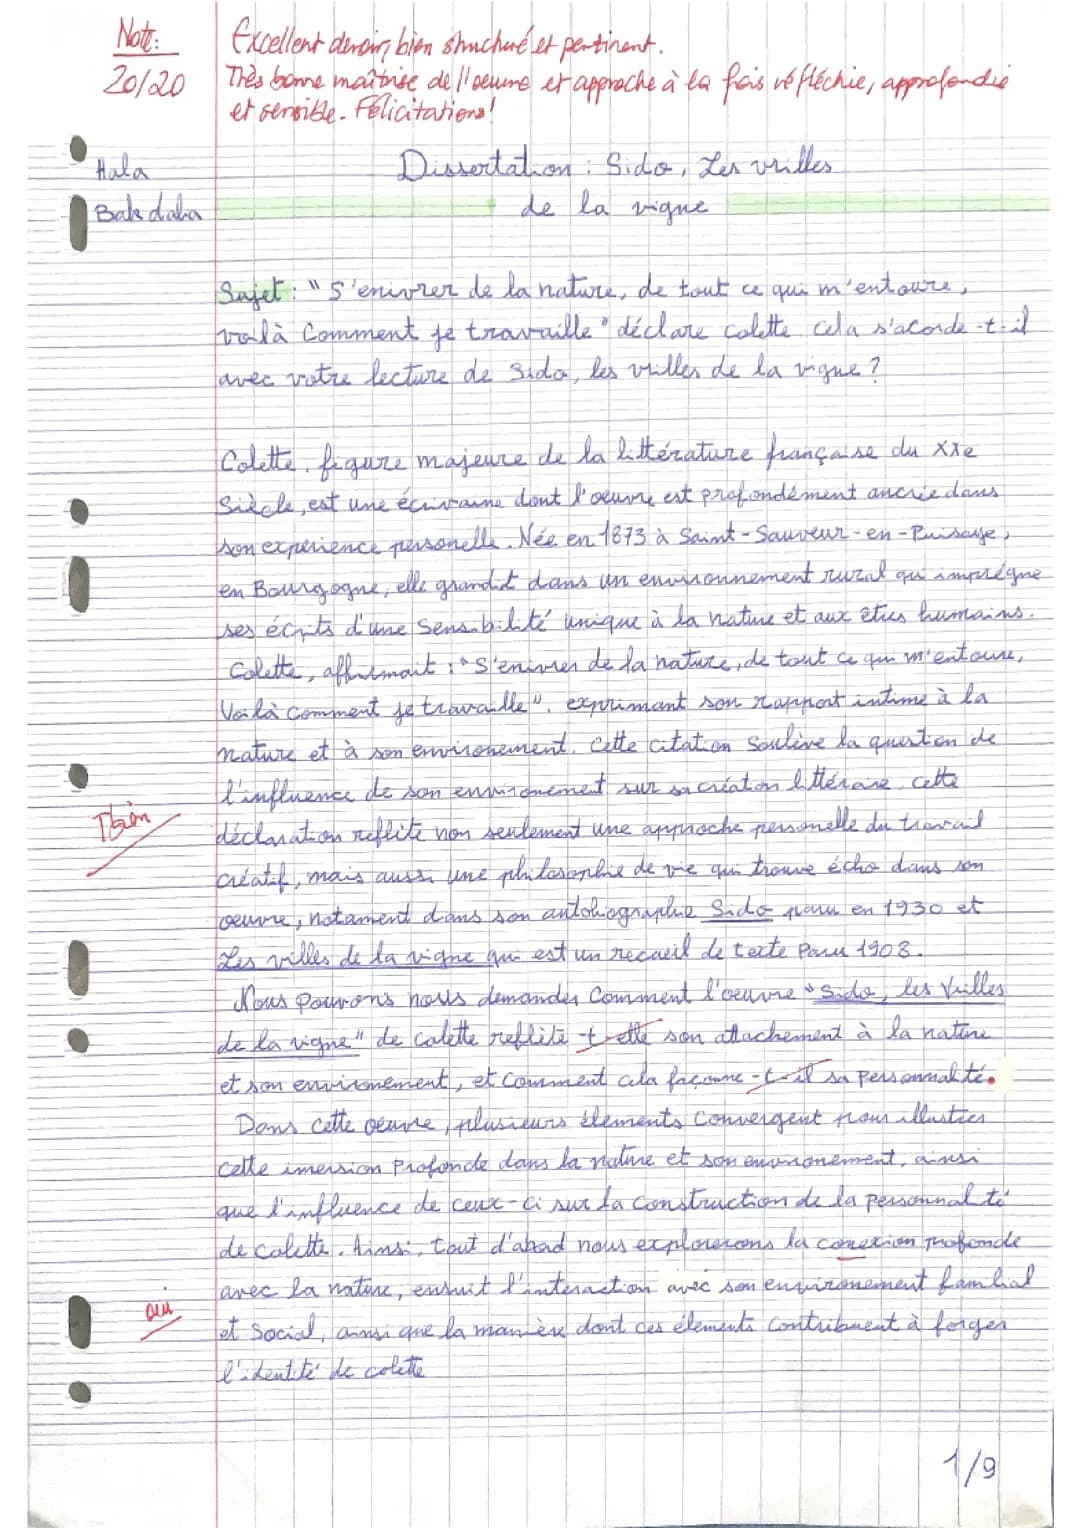 Note:
20/20
Excellent devoir, bien structuré et pertinent.
Très bonne maîtrise de l'oeuvre et approche à la fois réfléchie, approfondie
et sensible. Félicitations!
Hala
Dissertation : Sido, Les vrilles
de la vigne
Sujet : "S'enivrer de la nature, de tout ce qui m'entoure,
voilà Comment je travaille" déclare colette. cela s'acorde-t-il
avec votre lecture de Sido, les vrilles de la vigne ?
Colette, figure majeure de la littérature française du XXe
Siècle, est une écrivaine dont l'oeuvre est profondément ancrée dans
son experience personelle. Née en 1873 à Saint-Sauveur-en-Puisaye,
en Bourgogne, elle grandit dans un environnement rural qui imprégne
ses écrits d'une Sensibilité unique à la nature et aux êtres humains.
Colette, affirmait : "S'enivrer de la nature, de tout ce qui m'entoure,
Voilà comment je travaille". exprimant son rapport intime à la
nature et à son environement. Cette citation Soulève la question de
l'influence de son environement sur sa création littéraire. cette
Tbien
déclaration reflète non seulement une approche personelle du travail
créatif, mais aussi une philosophie de vie qui trouve écho dans son
oeuvre, notament dans son autobiographie Sido paru en 1930 et
Les villes de la vigne qui est un recueil de texte Paru 1908.
Nous pouvons nous demander Comment l'oeuvre "Sido, les Vrilles
de la vigne" de colette reflète -t-elle son attachement à la nature
et son environement, et Comment cela façonne-t-il sa personnalité.
Dans cette oeuvre, plusieurs élements Convergent pour illustrer
cette imersion Profonde dans la nature et son environement, ainsi
que l'influence de ceux-ci sur la construction de la personnalité
de colette. Ainsi, tout d'abord nous explorerons la conexion profonde
avec la nature, ensuit l'interaction avec son environement familial
oui
et Social, ainsi que la manière dont ces élements Contribuent à forger
l'identité de colette
1/9